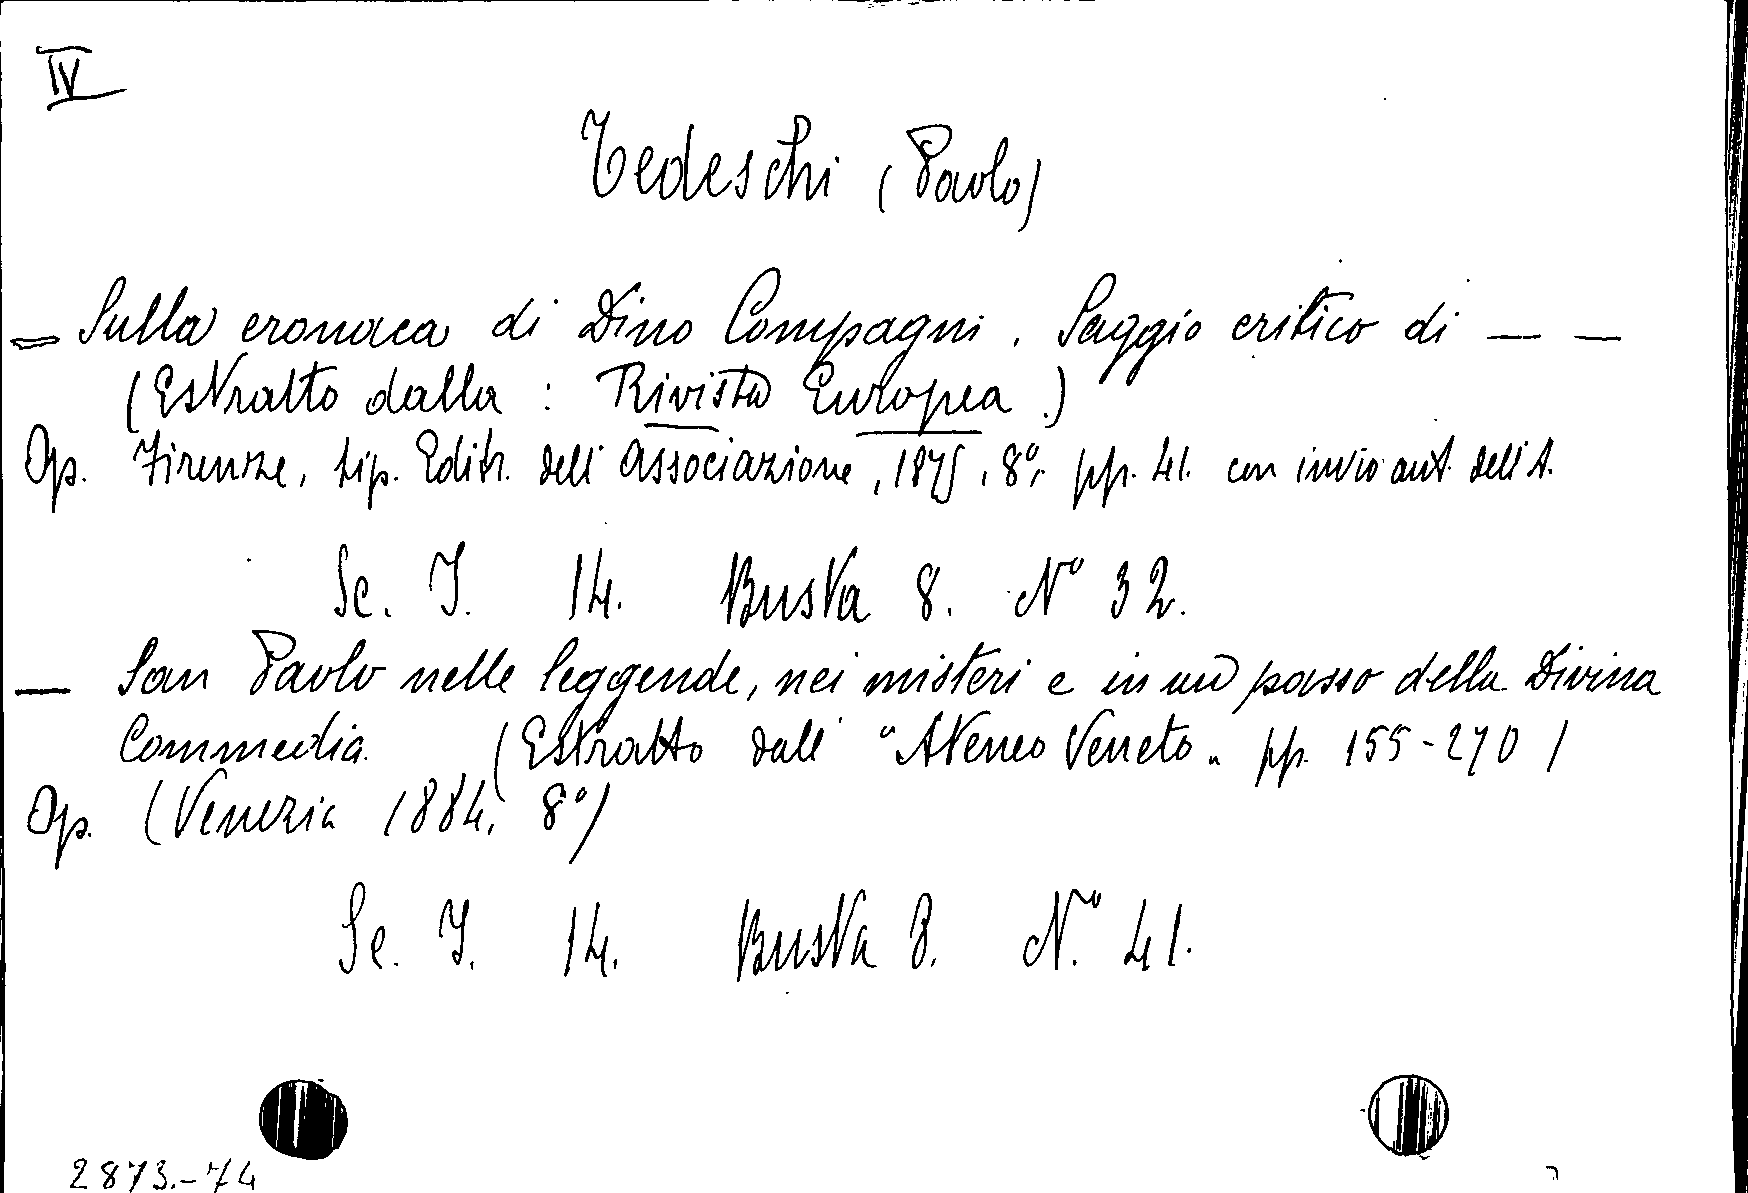 IV
Tedeschi (Paolo)
= Sulla cronaca di Dino Compagni. Saggio critico di — —
(Estratto dalla: Rivista Europea.)
Op. Firenze, tip. Editr. dell'Associazione, 1875, 8°, pp. 41. con invio aut. dell'A.
Sc. I. 14. Busta 8. N° 32.
— San Paolo nelle leggende, nei misteri e in un passo della Divina
Commedia. (Estratto dall' "Ateneo Veneto„ pp. 155-270)
Op. (Venezia 1884, 8°)
Sc. I. 14. Busta 8. N.° 41.
2873.-74